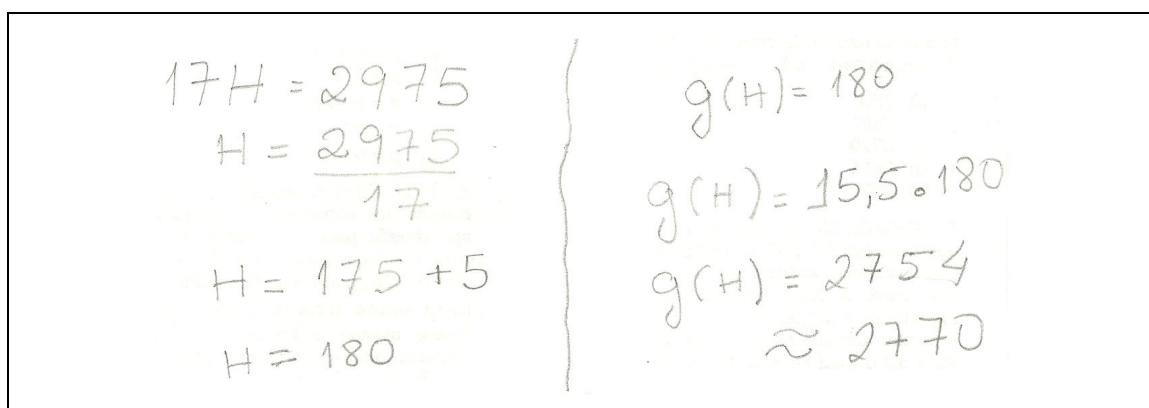 17H = 2975
H = 2975
17
H = 175 + 5
H = 180
g(H) = 180
g(H) = 15,5 . 180
g(H) = 2754
≈ 2770